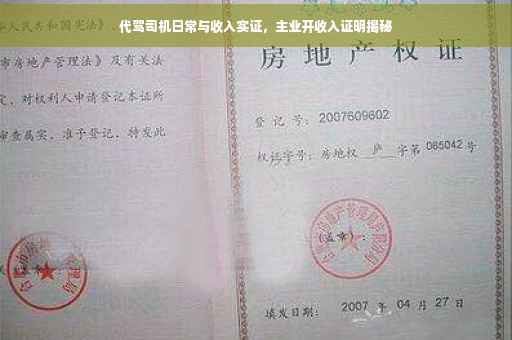 代驾司机日常与收入实证，主业开收入证明揭秘
人民共和国宪法》、
市房地产管理法》及有关法
定，对权利人申请登记本证所
审查属实，准予登记，特发此
房地产权证
登记号：2007609602
权证字号：房地权 庐 字第 065042 号
（盖章）：
填发日期：2007 年 04 月 27 日